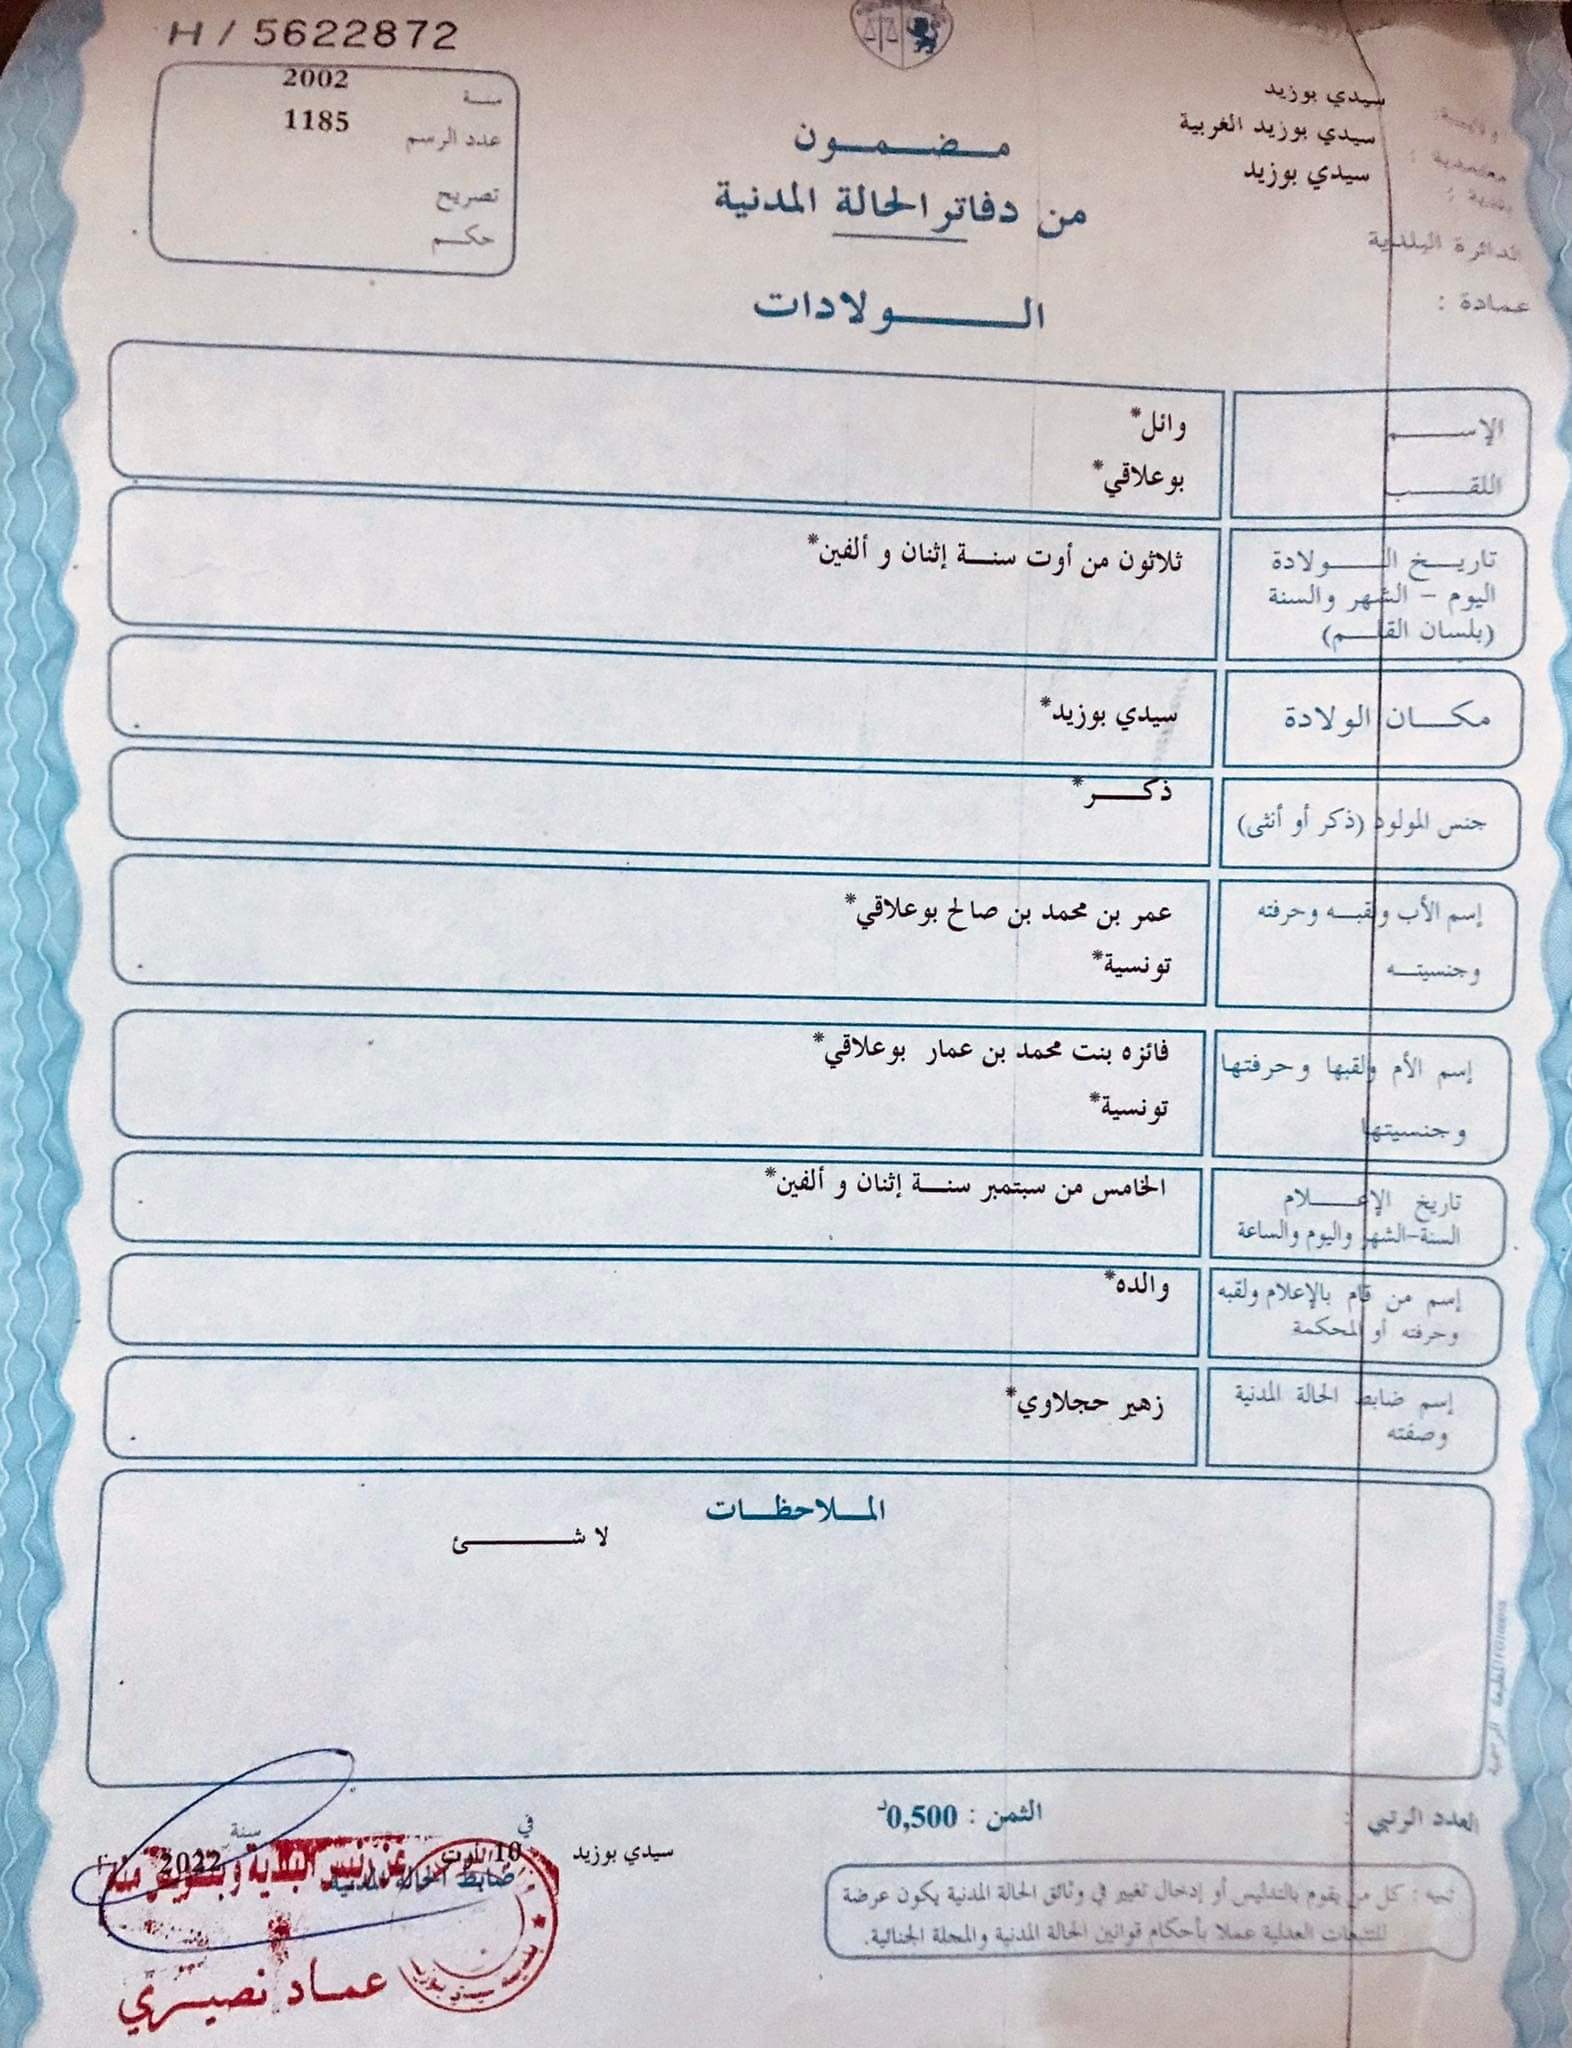 H / 5622872
سنة 2002
عدد الرسم 1185
تصريح
حكم
مضمون
من دفاتر الحالة المدنية
الولادات
ولاية: سيدي بوزيد
معتمدية : سيدي بوزيد الغربية
بلدية : سيدي بوزيد
الدائرة البلدية
عمادة :
الإسم وائل*
اللقب بوعلاقي*
تاريخ الولادة ثلاثون من أوت سنة إثنان و ألفين*
اليوم - الشهر والسنة
(بلسان القلم)
مكان الولادة سيدي بوزيد*
جنس المولود (ذكر أو أنثى) ذكر*
إسم الأب ولقبه وحرفته عمر بن محمد بن صالح بوعلاقي*
وجنسيته تونسية*
إسم الأم ولقبها وحرفتها فائزه بنت محمد بن عمار بوعلاقي*
وجنسيتها تونسية*
تاريخ الإعلام الخامس من سبتمبر سنة إثنان و ألفين*
السنة-الشهر واليوم والساعة
إسم من قام بالإعلام ولقبه والده*
وحرفته أو المحكمة
إسم ضابط الحالة المدنية زهير حجلاوي*
وصفته
الملاحظات
لا شئ
العدد الرتبي :
الثمن : 0,500د
سيدي بوزيد في 10 أوت سنة 2022
ضابط الحالة المدنية
عن رئيس البلدية وبتفويض منه
عماد نصيري
تنبيه : كل من يقوم بالتدليس أو إدخال تغيير في وثائق الحالة المدنية يكون عرضة
للتتبعات العدلية عملا بأحكام قوانين الحالة المدنية والمجلة الجنائية.